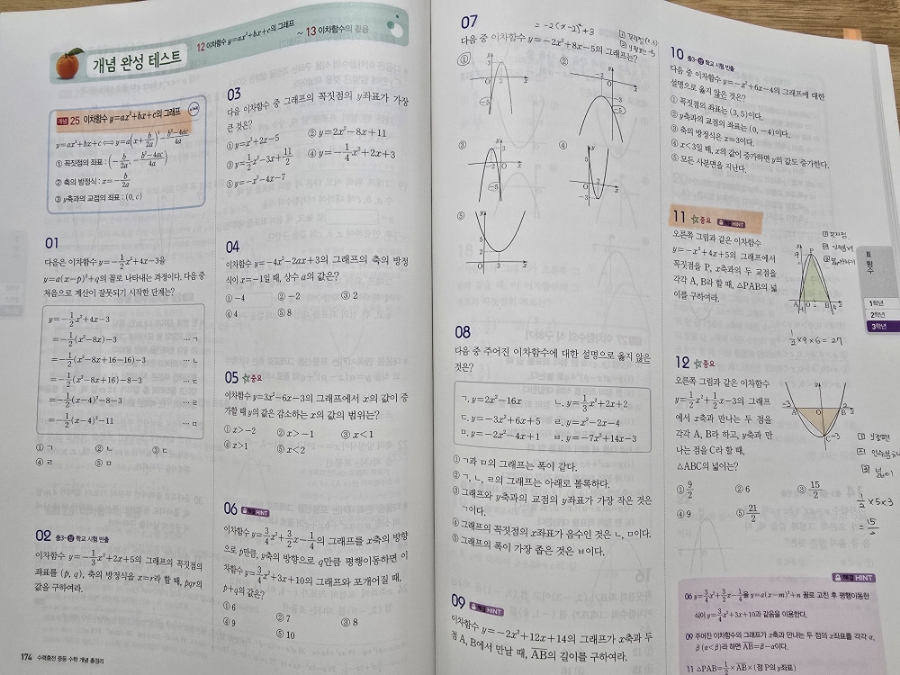 12 이차함수 y=ax²+bx+c의 그래프
~ 13 이차함수의 활용
개념 완성 테스트
25 이차함수 y=ax²+bx+c의 그래프
y=ax²+bx+c ⟺ y=a(x+b/2a)²-(b²-4ac)/4a
① 꼭짓점의 좌표 : (-b/2a, -(b²-4ac)/4a)
② 축의 방정식 : x=-b/2a
③ y축과의 교점의 좌표 : (0, c)
01
다음은 이차함수 y=-1/2x²+4x-3을
y=a(x-p)²+q의 꼴로 나타내는 과정이다. 다음 중
처음으로 계산이 잘못되기 시작한 단계는?
y=-1/2x²+4x-3
=-1/2(x²-8x)-3 … ㄱ
=-1/2(x²-8x+16-16)-3 … ㄴ
=-1/2(x²-8x+16)-8-3 … ㄷ
=-1/2(x-4)²-8-3 … ㄹ
=-1/2(x-4)²-11 … ㅁ
① ㄱ ② ㄴ ③ ㄷ
④ ㄹ ⑤ ㅁ
02 중3- 학교 시험 빈출
이차함수 y=-1/3x²+2x+5의 그래프의 꼭짓점의
좌표를 (p, q), 축의 방정식을 x=r라 할 때, pqr의
값을 구하여라.
174 수력충전 중등 수학 개념 총정리
03
다음 이차함수 중 그래프의 꼭짓점의 y좌표가 가장
큰 것은?
① y=x²+2x-5 ② y=2x²-8x+11
③ y=1/2x²-3x+11/2 ④ y=-1/4x²+2x+3
⑤ y=-x²-4x-7
04
이차함수 y=-4x²-2ax+3의 그래프의 축의 방정
식이 x=-1일 때, 상수 a의 값은?
① -4 ② -2 ③ 2
④ 4 ⑤ 8
05 중요
이차함수 y=3x²-6x-3의 그래프에서 x의 값이 증
가할 때 y의 값은 감소하는 x의 값의 범위는?
① x>-2 ② x>-1 ③ x<1
④ x>1 ⑤ x<2
06 HINT
이차함수 y=3/4x²+3/2x-1/4의 그래프를 x축의 방향
으로 p만큼, y축의 방향으로 q만큼 평행이동하면 이
차함수 y=3/4x²+3x+10의 그래프와 포개어질 때,
p+q의 값은?
① 6 ② 7 ③ 8
④ 9 ⑤ 10
07
=-2(x-2)²+3
다음 중 이차함수 y=-2x²+8x-5의 그래프는?
①
②
③
④
⑤
08
다음 중 주어진 이차함수에 대한 설명으로 옳지 않은
것은?
ㄱ. y=2x²-16x ㄴ. y=1/3x²+2x+2
ㄷ. y=-3x²+6x+5 ㄹ. y=x²-2x-4
ㅁ. y=-2x²-4x+1 ㅂ. y=-7x²+14x-3
① ㄱ과 ㅁ의 그래프는 폭이 같다.
② ㄱ, ㄴ, ㄹ의 그래프는 아래로 볼록하다.
③ 그래프와 y축과의 교점의 y좌표가 가장 작은 것은
ㄱ이다.
④ 그래프의 꼭짓점의 x좌표가 음수인 것은 ㄴ, ㅁ이다.
⑤ 그래프의 폭이 가장 좁은 것은 ㅂ이다.
09 HINT
이차함수 y=-2x²+12x+14의 그래프가 x축과 두
점 A, B에서 만날 때, AB의 길이를 구하여라.
10 중3- 학교 시험 빈출
다음 중 이차함수 y=-x²+6x-4의 그래프에 대한
설명으로 옳지 않은 것은?
① 꼭짓점의 좌표는 (3, 5)이다.
② y축과의 교점의 좌표는 (0, -4)이다.
③ 축의 방정식은 x=3이다.
④ x<3일 때, x의 값이 증가하면 y의 값도 증가한다.
⑤ 모든 사분면을 지난다.
11 중요 HINT
오른쪽 그림과 같은 이차함수
y=-x²+4x+5의 그래프에서
꼭짓점을 P, x축과의 두 교점을
각각 A, B라 할 때, △PAB의 넓
이를 구하여라.
1/2×9×6=27
12 중요
오른쪽 그림과 같은 이차함수
y=1/2x²+1/2x-3의 그래프
에서 x축과 만나는 두 점을
각각 A, B라 하고, y축과 만
나는 점을 C라 할 때,
△ABC의 넓이는?
① 9/2 ② 6 ③ 15/2
④ 9 ⑤ 21/2
1/2×5×3
=15/2
HINT
06 y=3/4x²+3/2x-1/4을 y=a(x-m)²+n 꼴로 고친 후 평행이동한
식이 y=3/4x²+3x+10과 같음을 이용한다.
09 주어진 이차함수의 그래프가 x축과 만나는 두 점의 x좌표를 각각 α,
β (α<β)라 하면 AB=β-α이다.
11 △PAB=1/2×AB×(점 P의 y좌표)
Ⅲ 함수
1학년
2학년
3학년